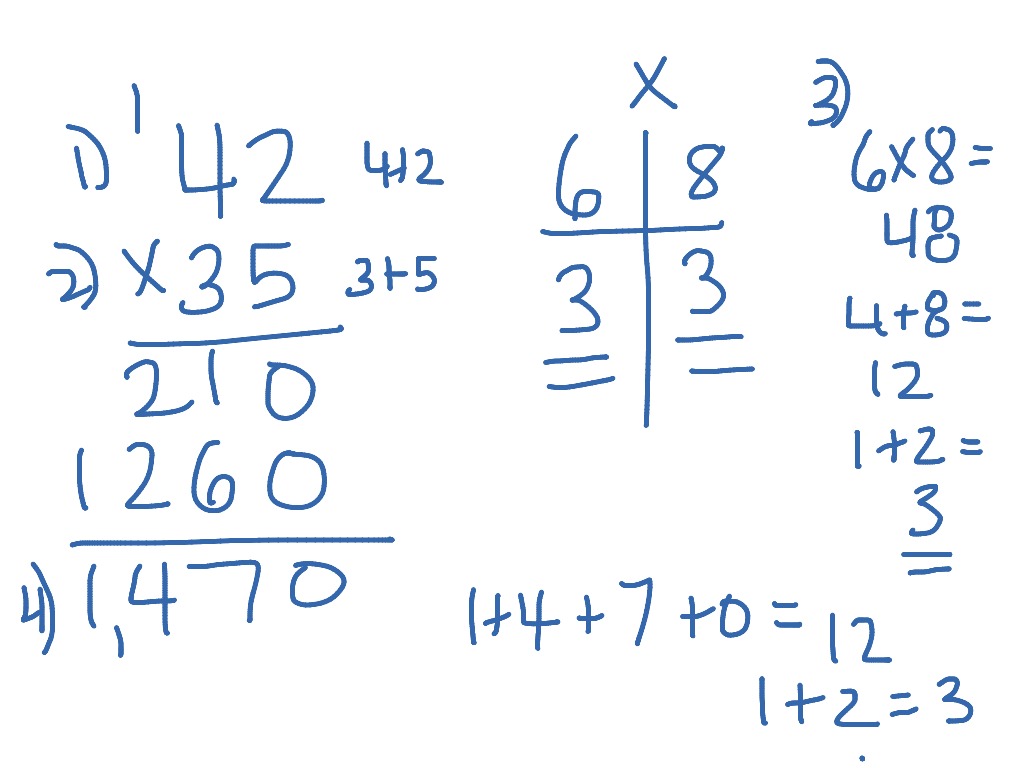 1
1) 42 4+2
2) x35 3+5
210
1260
4) 1,470
X
6 8
3 3
3)
6x8=
48
4+8=
12
1+2=
3
1+4+7+0=12
1+2=3